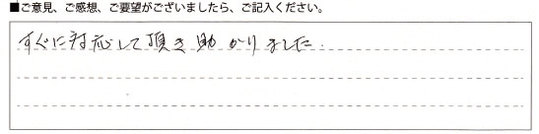 ■ご意見、ご感想、ご要望がございましたら、ご記入ください。
すぐに対応して頂き助かりました.